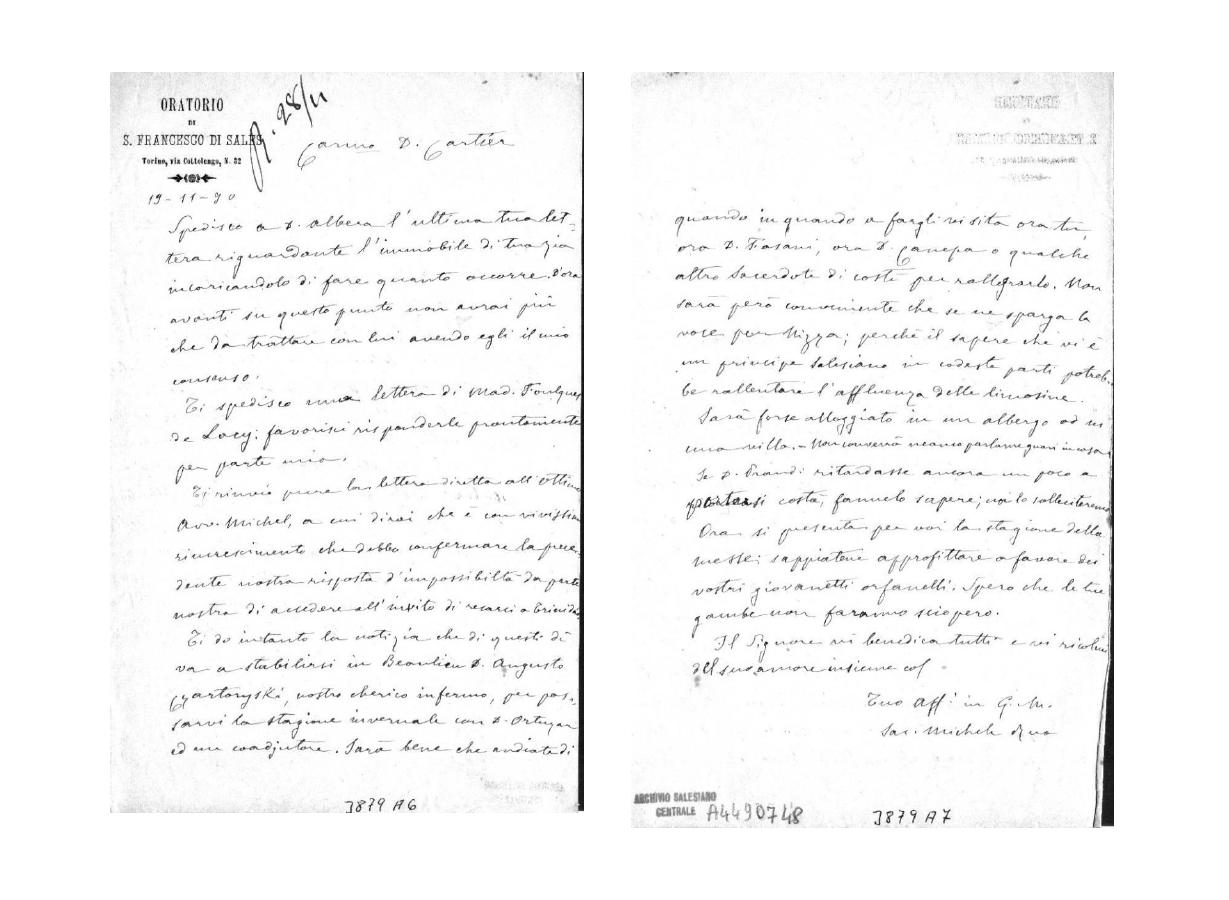 ORATORIO
DI
S. FRANCESCO DI SALES
Torino, via Cottolengo, N. 32
R. 28/11
Carmo D. Cartier
19-11-90
Spedisco a D. Albera l'ultima tua let-
tera riguardante l'immobile di
incaricandolo di fare quanto occorre. D'ora
avanti su questo punto non avrai più
che da trattare con lui avendo egli il mio
consenso.
Ti spedisco una lettera di Mad. Foulques
de Lacy: favorisci risponderle prontamente
per parte mia.
Ti rinvio pure la lettera diretta all'Ottimo
Avv. Michel, a cui dirai che è con vivissimo
rincrescimento che debbo confermare la prece-
dente nostra risposta d'impossibiltà da parte
nostra di accedere all'invito di recarci a
Ti do intanto la notizia che di questi dì
va a stabilirsi in Beaulieu D. Augusto
Czartoryski, nostro chierico infermo, per pas-
sarvi la stagione invernale con D. Ortuzar
ed un coadjutore. Sarà bene che andiate di
3879 A6
quando in quando a fargli visita ora tu,
ora D. Fasani, ora D. Canepa o qualche
altro Sacerdote di costì per rallegrarlo. Non
sarà però conveniente che se ne sparga la
voce per Nizza; perchè il sapere che vi è
un principe Salesiano in codeste parti potreb-
be rallentare l'affluenza delle limosine.
Sarà forse alloggiato in un albergo od in
una villa. - Non converrà neanco parlarne quasi in casa
Se D. Prandi ritardasse ancora un poco a
portarsi costà, fammelo sapere; noi lo solleciteremo
Ora si presenta per voi la stagione della
messe; sappiatene approfittare a favore dei
vostri giovanetti orfanelli. Spero che le tue
gambe non faranno sciopero.
Il Signore vi benedica tutti e vi ricolmi
del suo amore insieme col
Tuo aff. in G. M.
Sac. Michele Rua
ARCHIVIO SALESIANO
CENTRALE
A4490748
3879 A7